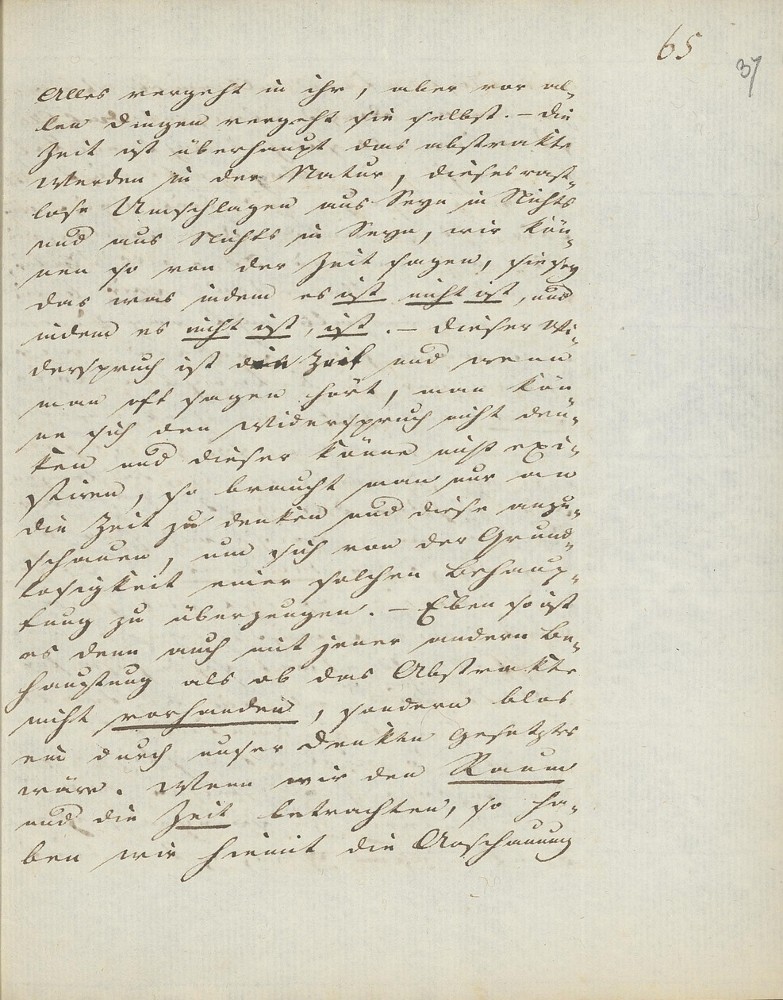 65
37
Alles vergeht in ihr, aber vor al-
len Dingen vergeht sie selbst. – Die
Zeit ist überhaupt das abstrakte
Werden in der Natur, dieses rast-
lose Umschlagen aus Seyn in Nichts
und aus Nichts in Seyn, wir kön-
nen so von der Zeit sagen, sie sey
das was indem es ist nicht ist, und
indem es nicht ist, ist. – Dieser Wi-
derspruch ist die Zeit und wenn
man oft sagen hört, man kön
ne sich den Widerspruch nicht den-
ken und dieser könne nicht exi-
stiren, so braucht man nur an
die Zeit zu denken und diese anzu-
schauen, um sich von der Grund-
losigkeit einer solchen Behaup-
tung zu überzeugen. – Eben so ist
es denn auch mit jener andern Be-
hauptung als ob das Abstrakte
nicht vorhanden, sondern blos
ein durch unser Denken gesetztes
wäre. Wenn wir den Raum
und die Zeit betrachten, so ha-
ben wir hiemit die Anschauung